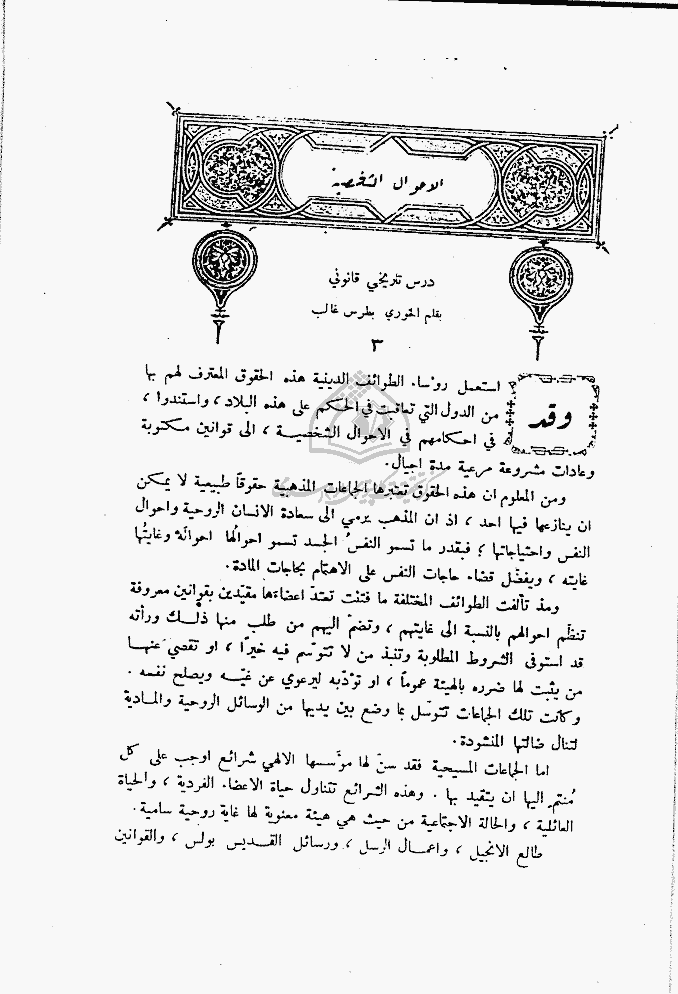 الاحوال الشخصية
درس تاريخي قانوني
بقلم الخوري بطرس غالب
٣
وقد استعمل روٴساء الطوائف الدينية هذه الحقوق المعترف لهم بها
من الدول التي تعاقبت في الحكم على هذه البلاد ، واستندوا ،
في احكامهم في الاحوال الشخصية ، الى قوانين مكتوبة
وعادات مشروعة مرعية مدة اجيال .
ومن المعلوم ان هذه الحقوق تعتبرها الجماعات المذهبية حقوقاً طبيعية لا يمكن
ان ينازعها فيها احد ، اذ ان المذهب يرمي الى سعادة الانسان الروحية واحوال
النفس واحتياجاتها ؛ فبقدر ما تسمو النفسُ الجسد تسمو احوالُها احوالَه وغايتُها
غايته ، ويفضل قضاء حاجات النفس على الاهتمام بحاجات المادة .
ومذ تألفت الطوائف المختلفة ما فتئت تعتدّ اعضاءها مقيّدين بقوانين معروفة
تنظّم احوالهم بالنسبة الى غايتهم ، وتضمّ اليهم من طلب منها ذلك ورأته
قد استوفى الشروط المطلوبة وتنبذ من لا تتوسّم فيه خيراً ، او تقصي عنها
من يثبت لها ضرره بالهيئة عموماً ، او توٴدّبه ليرعوي عن غيّه ويصلح نفسه .
وكانت تلك الجماعات تتوسّل بما وضع بين يديها من الوسائل الروحية والمادية
لتنال ضالتها المنشودة .
اما الجماعات المسيحية فقد سنّ لها موٴسسها الالهي شرائع اوجب على كل
مُنتمٍ اليها ان يتقيد بها . وهذه الشرائع تتناول حياة الاعضاء الفردية ، والحياة
العائلية ، والحالة الاجتماعية من حيث هي هيئة معنوية لها غاية روحية سامية .
طالع الانجيل ، واعمال الرسل ، ورسائل القديس بولس ، والقوانين